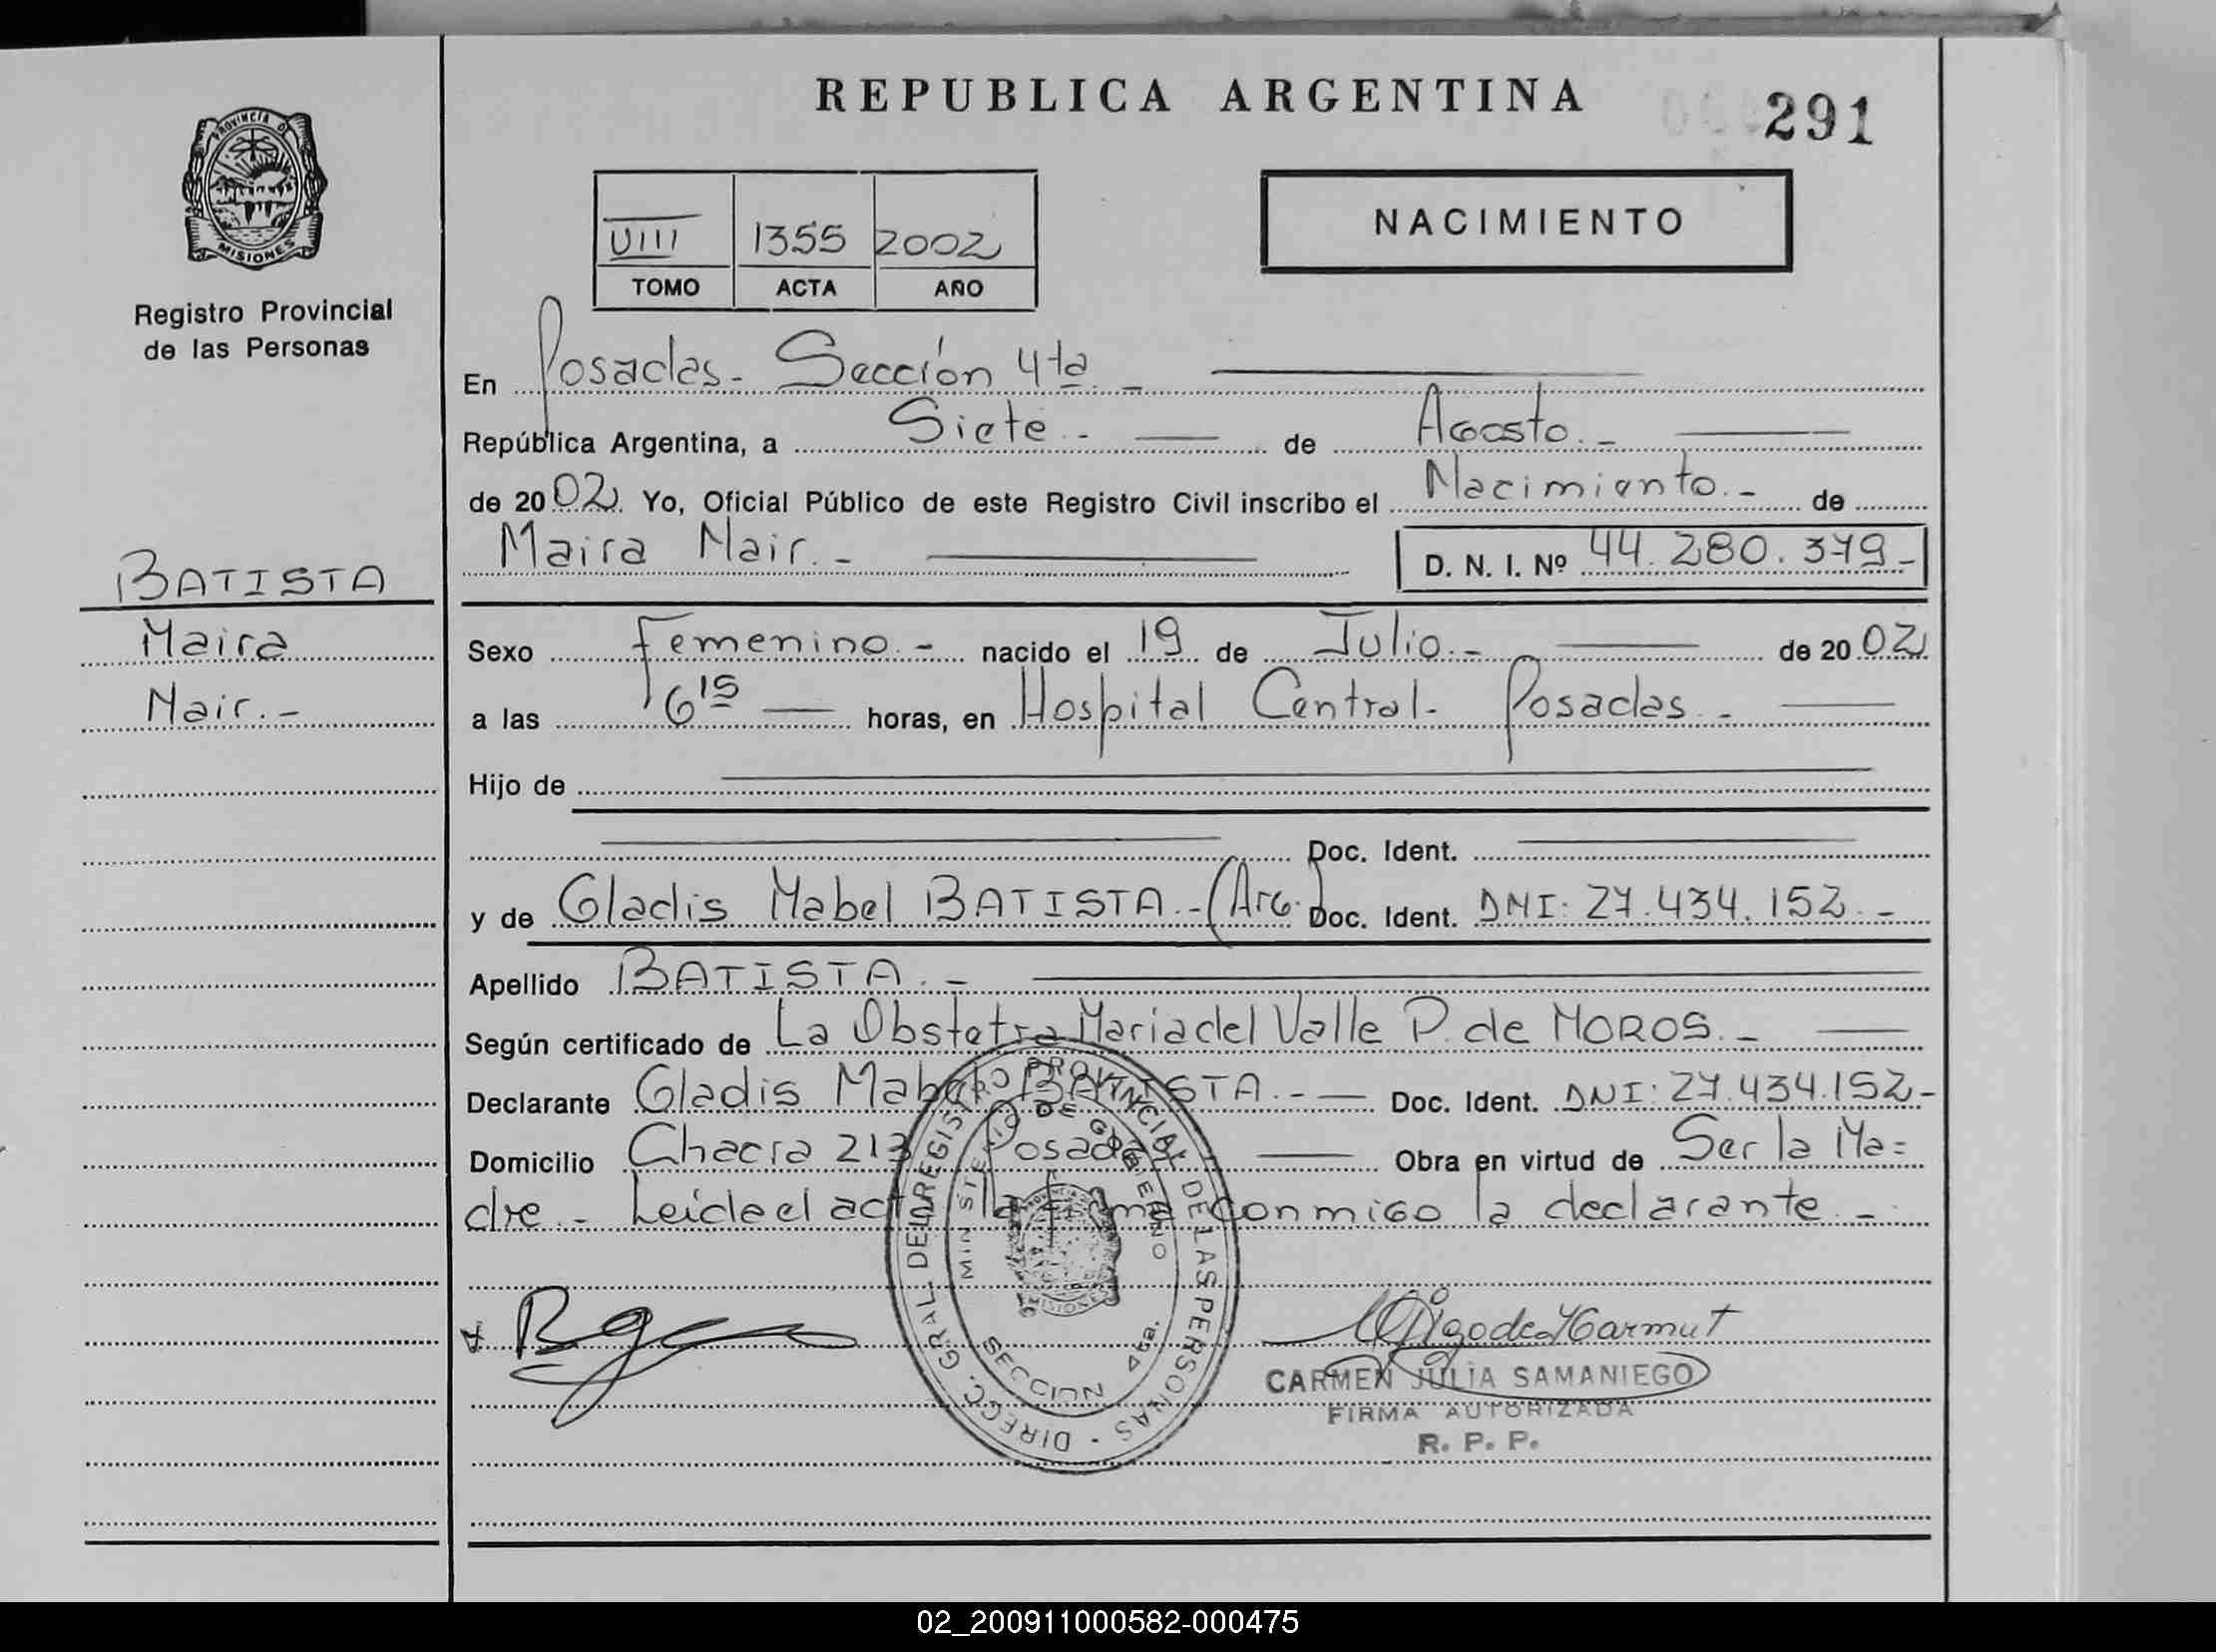 REPUBLICA ARGENTINA
291
PROVINCIA DE
MISIONES
Registro Provincial
de las Personas
NACIMIENTO
VIII 1355 2002
TOMO ACTA AÑO
En Posadas- Sección 4ta.-
República Argentina, a Siete.- de Agosto.-
de 2002. Yo, Oficial Público de este Registro Civil inscribo el Nacimiento.- de
Maira Nair.- D. N. I. Nº 44.280.379-
BATISTA
Maira
Nair.-
Sexo Femenino.- nacido el 19 de Julio.- de 2002
a las 6 15 horas, en Hospital Central- Posadas.-
Hijo de
Doc. Ident.
y de Gladis Mabel BATISTA.-(Arg.) Doc. Ident. DNI: 27.434.152.-
Apellido BATISTA.-
Según certificado de La Obstetra Maria del Valle P. de MOROS.-
Declarante Gladis Mabel BATISTA.- Doc. Ident. DNI: 27.434.152-
Domicilio Chacra 213 Posadas.- Obra en virtud de Ser la Ma=
dre.- Leida el acta la firma conmigo la declarante.-
DIRECC. GRAL. DEL REGISTRO PROVINCIAL DE LAS PERSONAS
MINISTERIO DE GOBIERNO
MISIONES
SECCION 4ta.
CARMEN JULIA SAMANIEGO
FIRMA AUTORIZADA
R. P. P.
02_200911000582-000475